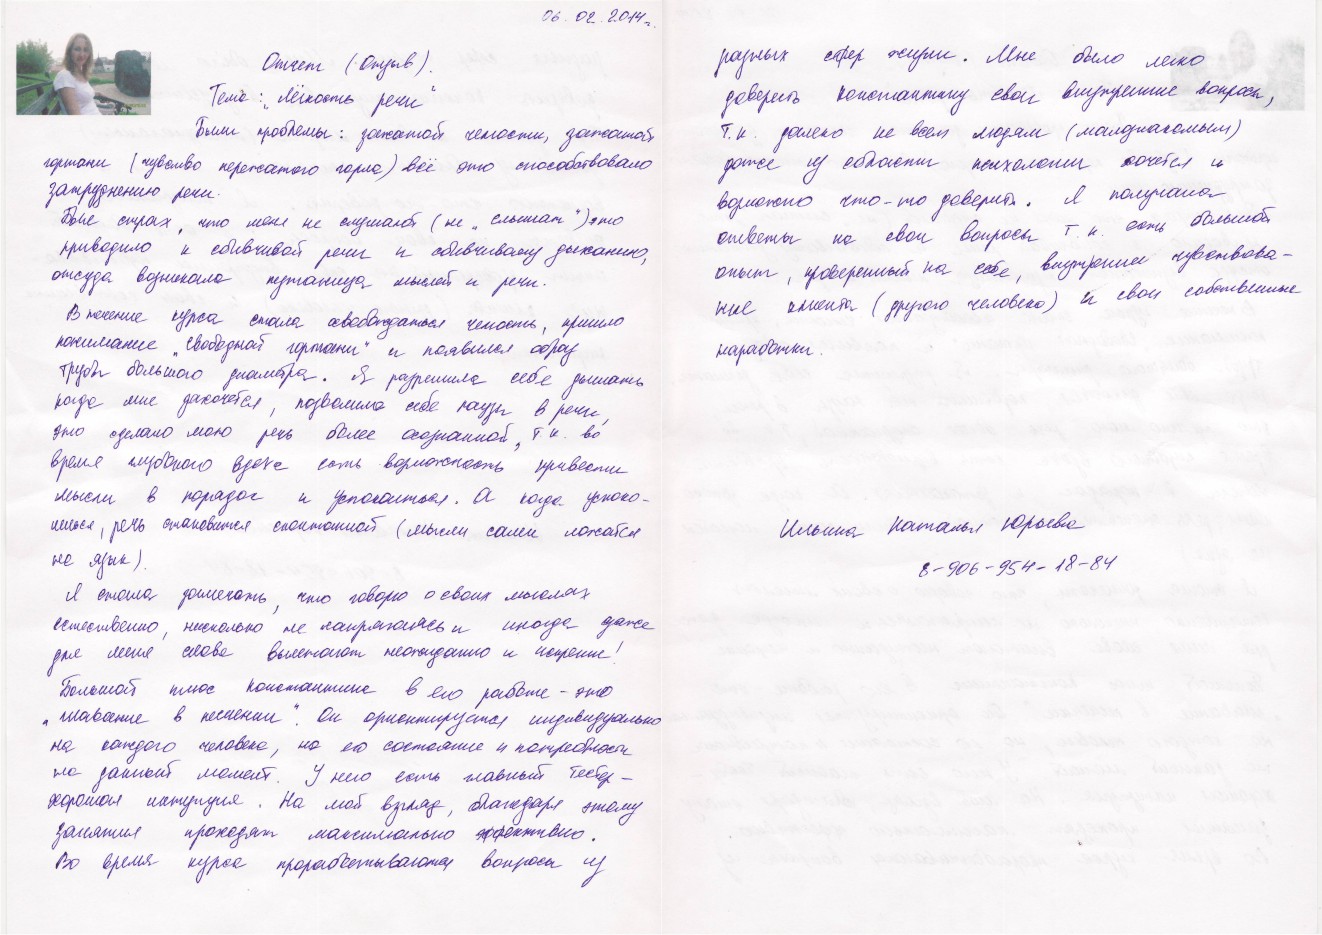 06.02.2014г.
Отчет (Отзыв).
Тема: „Лёгкость речи"
Были проблемы: зажатой челюсти, зажатой
гортани (чувство пережатого горла) всё это способствовало
затруднению речи.
Был страх, что меня не слушают (не „слышат") это
приводило к сбивчивой речи и сбивчивому дыханию,
откуда возникала путаница мыслей и речи.
В течение курса стала освобождаться челюсть, пришло
понимание „свободной гортани" и появился образ
трубы большого диаметра. Я разрешила себе дышать
когда мне захочется, позволила себе паузы в речи,
это сделало мою речь более осознанной, т.к. во
время глубокого вдоха есть возможность привести
мысли в порядок и успокоиться. А когда успоко-
ишься, речь становится спонтанной (мысли сами ложатся
на язык).
Я стала замечать, что говорю о своих мыслях
естественно, нисколько не напрягаясь и иногда даже
для меня слова вылетают неожиданно и искренне!
Большой плюс Константина в его работе - это
„плавание в течении". Он ориентируется индивидуально
на каждого человека, на его состояние и потребности
на данный момент. У него есть главный тестер -
хорошая интуиция. На мой взгляд, благодаря этому
занятия проходят максимально эффективно.
Во время курса прорабатываются вопросы из
разных сфер жизни. Мне было легко
доверить Константину свои внутренние вопросы,
т.к. далеко не всем людям (малознакомым)
даже из области психологии хочется и
возможно что-то доверить. Я получала
ответы на свои вопросы т.к. есть большой
опыт, проверенный на себе, внутреннее чувствова-
ние клиента (другого человека) и свои собственные
наработки.
Ильина Наталья Юрьевна
8-906-954-18-84